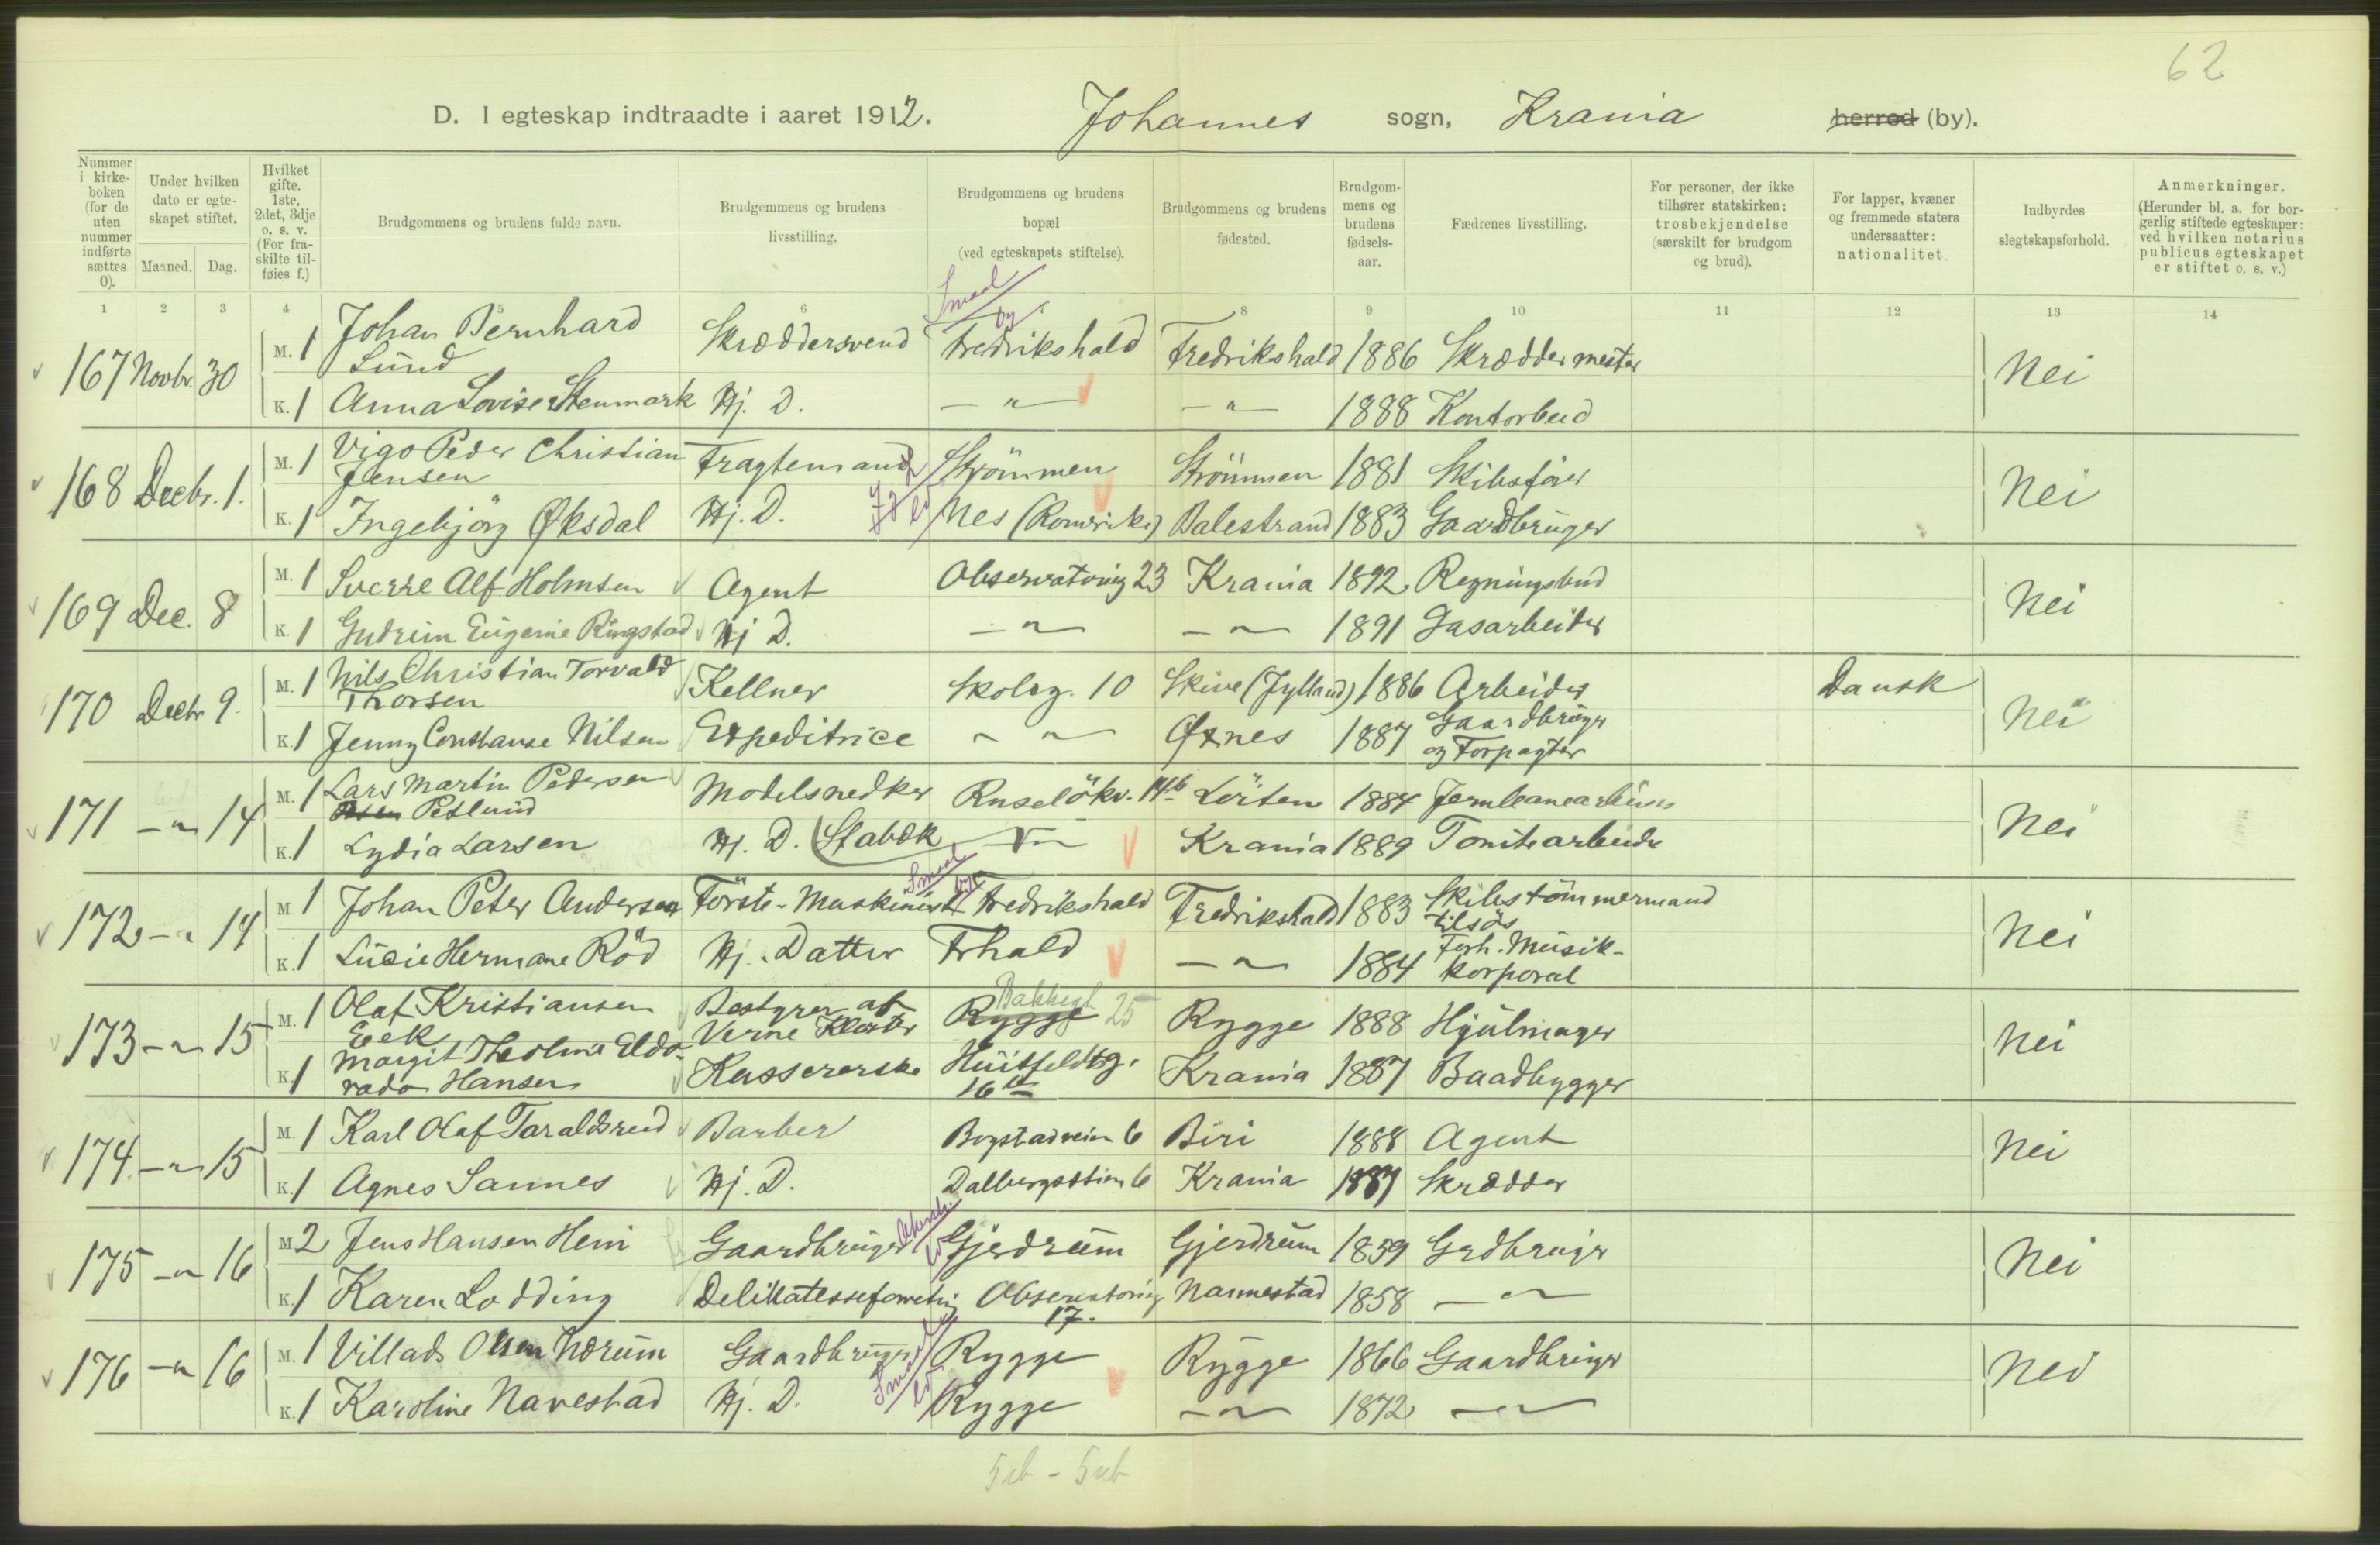 62
D. I egteskap indtraadte i aaret 1912. Johannes sogn, Krania herred (by).
Nummer i kirkeboken (for de uten nummer indførte sættes 0).
Under hvilken dato er egteskapet stiftet.
Maaned. Dag.
Hvilket gifte. 1ste, 2det, 3dje o. s. v. (For fraskilte tilføies f.)
Brudgommens og brudens fulde navn.
Brudgommens og brudens livsstilling.
Brudgommens og brudens bopæl (ved egteskapets stiftelse).
Brudgommens og brudens fødested.
Brudgommens og brudens fødselsaar.
Fædrenes livsstilling.
For personer, der ikke tilhører statskirken: trosbekjendelse (særskilt for brudgom og brud).
For lapper, kvæner og fremmede staters undersaatter: nationalitet.
Indbyrdes slegtskapsforhold.
Anmerkninger. (Herunder bl. a. for borgerlig stiftede egteskaper: ved hvilken notarius publicus egteskapet er stiftet o. s. v.)
1 2 3 4 5 6 8 9 10 11 12 13 14
167 Novbr. 30 M. 1 Johan Bernhard Lund Skræddersvend Smaal by Fredrikshald Fredrikshald 1886 Skræddermester Nei
K. 1 Anna Lovise Stenmark Hj. D. — " — — " — 1888 Kontorbud
168 Decbr. 1. M. 1 Vigo Peder Christian Jensen Fragtemand Strömmen Strömmen 1881 Skibsförer Nei
K. 1 Ingebjörg Øksdal Hj. D. Nes (Romerike) Balestrand 1883 Gaardbruger
169 Dec. 8 M. 1 Sverre Alf Holmsen Agent Observatorieg 23 Krania 1892 Regningsbud Nei
K. 1 Gudrun Eugenie Ringstad Hj D. — " — — " — 1891 Gasarbeider
170 Decbr 9. M. 1 Nils Christian Torvald Thorsen Kellner Skoleg. 10 Skive (Jylland) 1886 Arbeider Dansk Nei
K. 1 Jenny Constanse Nilsen Expeditrice — " — Øxnes 1887 Gaardbruger og Forpagter
171 — " — 14 M. 1 Lars Martin Pedersen Petlund Modelsnedker Ruselökv. 14b Löiten 1884 Jernbanearbeider Nei
K. 1 Lydia Larsen Hj. D. (Stabæk — " — Krania 1889 Tomtearbeider
172 — " — 14 M. 1 Johan Peter Andersen Förste-Maskinist Smaal by Fredrikshald Fredrikshald 1883 Skibstömmermand tilsös Nei
K. 1 Lucie Hermane Röd Hj. Datter Frhald — " — 1884 Forh. Musik-korporal
173 — " — 15 M. 1 Olaf Kristiansen Eek Bestyrer af Verne Kloster Rygge Bakkegt 25 Rygge 1888 Hjulmager Nei
K. 1 Margit Theoline Eldorada Hansen Kassererske Huitfeldtsg. 16 Krania 1887 Baadbygger
174 — " — 15 M. 1 Karl Olaf Taraldsrud Barber Bogstadveien 6 Biri 1888 Agent Nei
K. 1 Agnes Sannes Hj. D. Dalbergstien 6 Krania 1887 Skrædder
175 — " — 16 M 2 Jens Hansen Hem Gaardbruger Akersh. Gjerdrum Gjerdrum 1859 Grdbruger Nei
K. 1 Karen Lodding Delikatesseforretning Observatorieg 17. Nannestad 1858 — " —
176 — " — 16 M. 1 Villads Olsen Nærum Gaardbruger Smaal Rygge Rygge 1866 Gaardbruger Nei
K. 1 Karoline Navestad Hj. D. Rygge — " — 1872 — " —